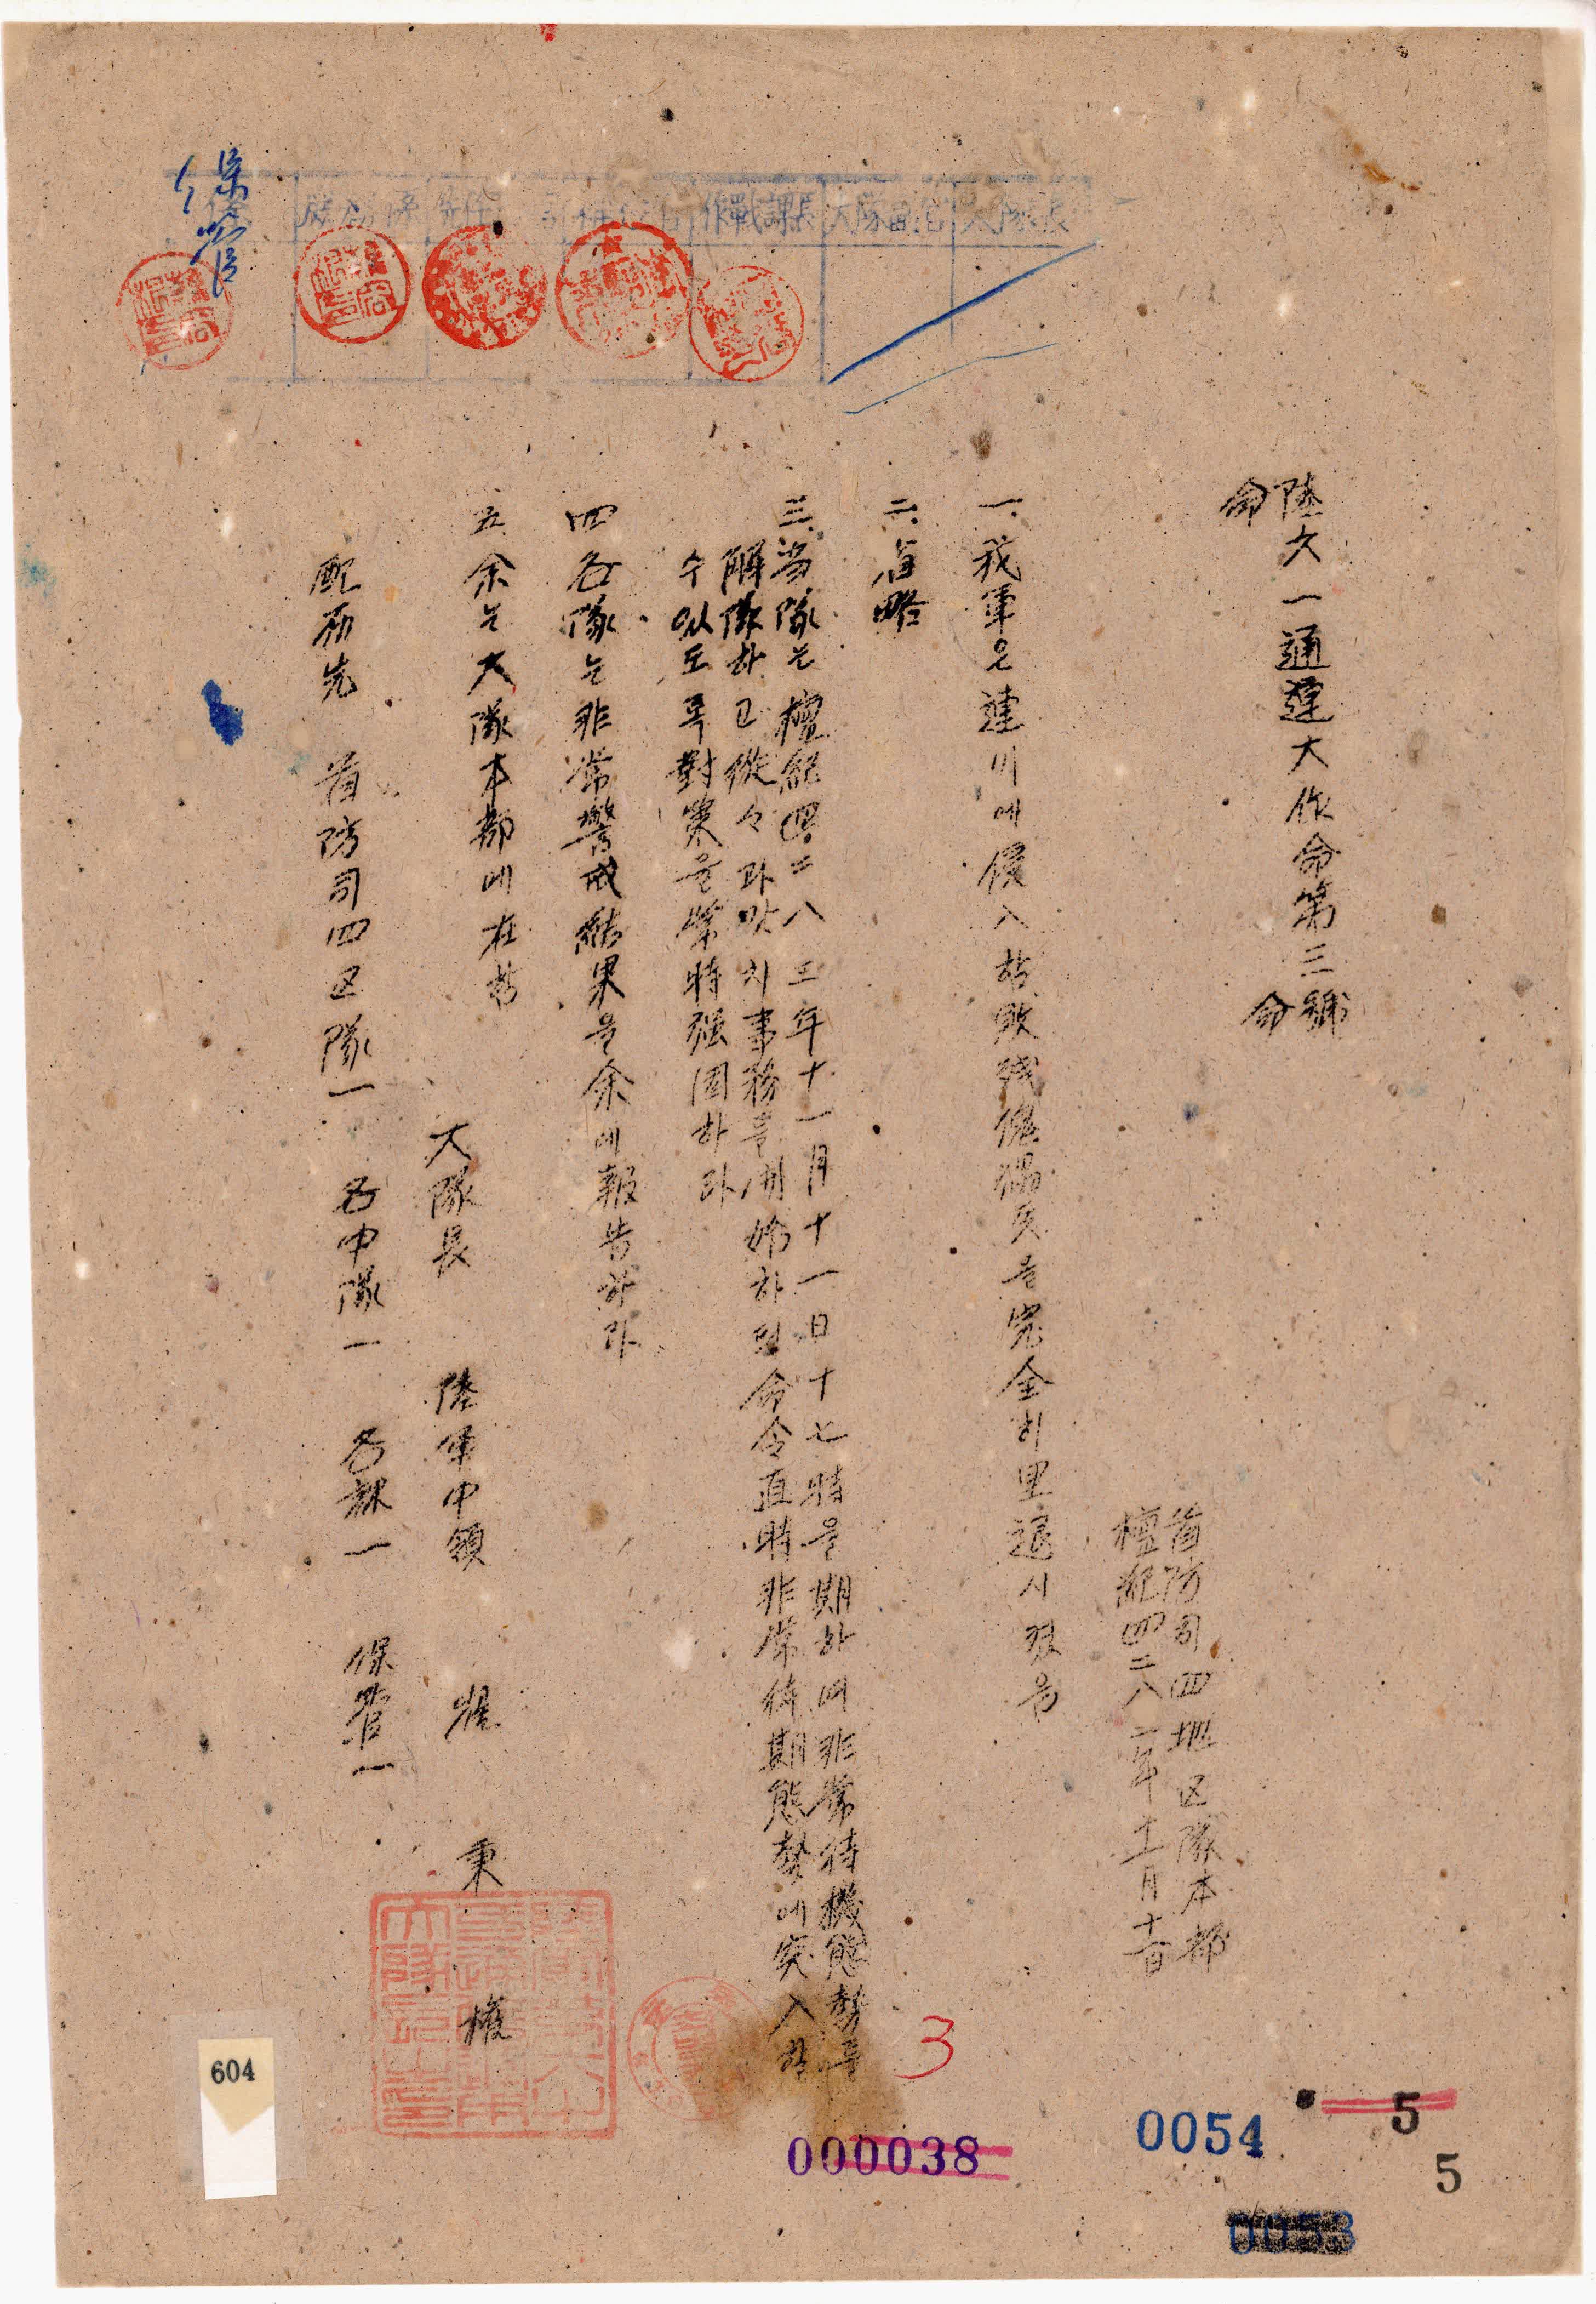 陸久一通連大作命第三號
命 命
首防司四地区隊本部
檀紀四二八三年十一月十一日
一、我軍은連川에侵入한敗残傀儡군을完全히擊退시켰음
二、省略
三、当隊는檀紀四二八三年十一月十一日十七時을期하여非常待機態勢를
解隊하고從々와맛치事務를開始하되命令直時非常待期態勢에突入할
수있도록對策을常時强固하라
四各隊는非常警戒結果을余에報告하라
五、余는大隊本部에在함
大隊長 陸軍中領 崔秉權
配布先 首防司四区隊一 各中隊一 各課一 保管一
保管
作戰課長 大隊副官 大隊長
3
604
000038
0054
5
5
0053